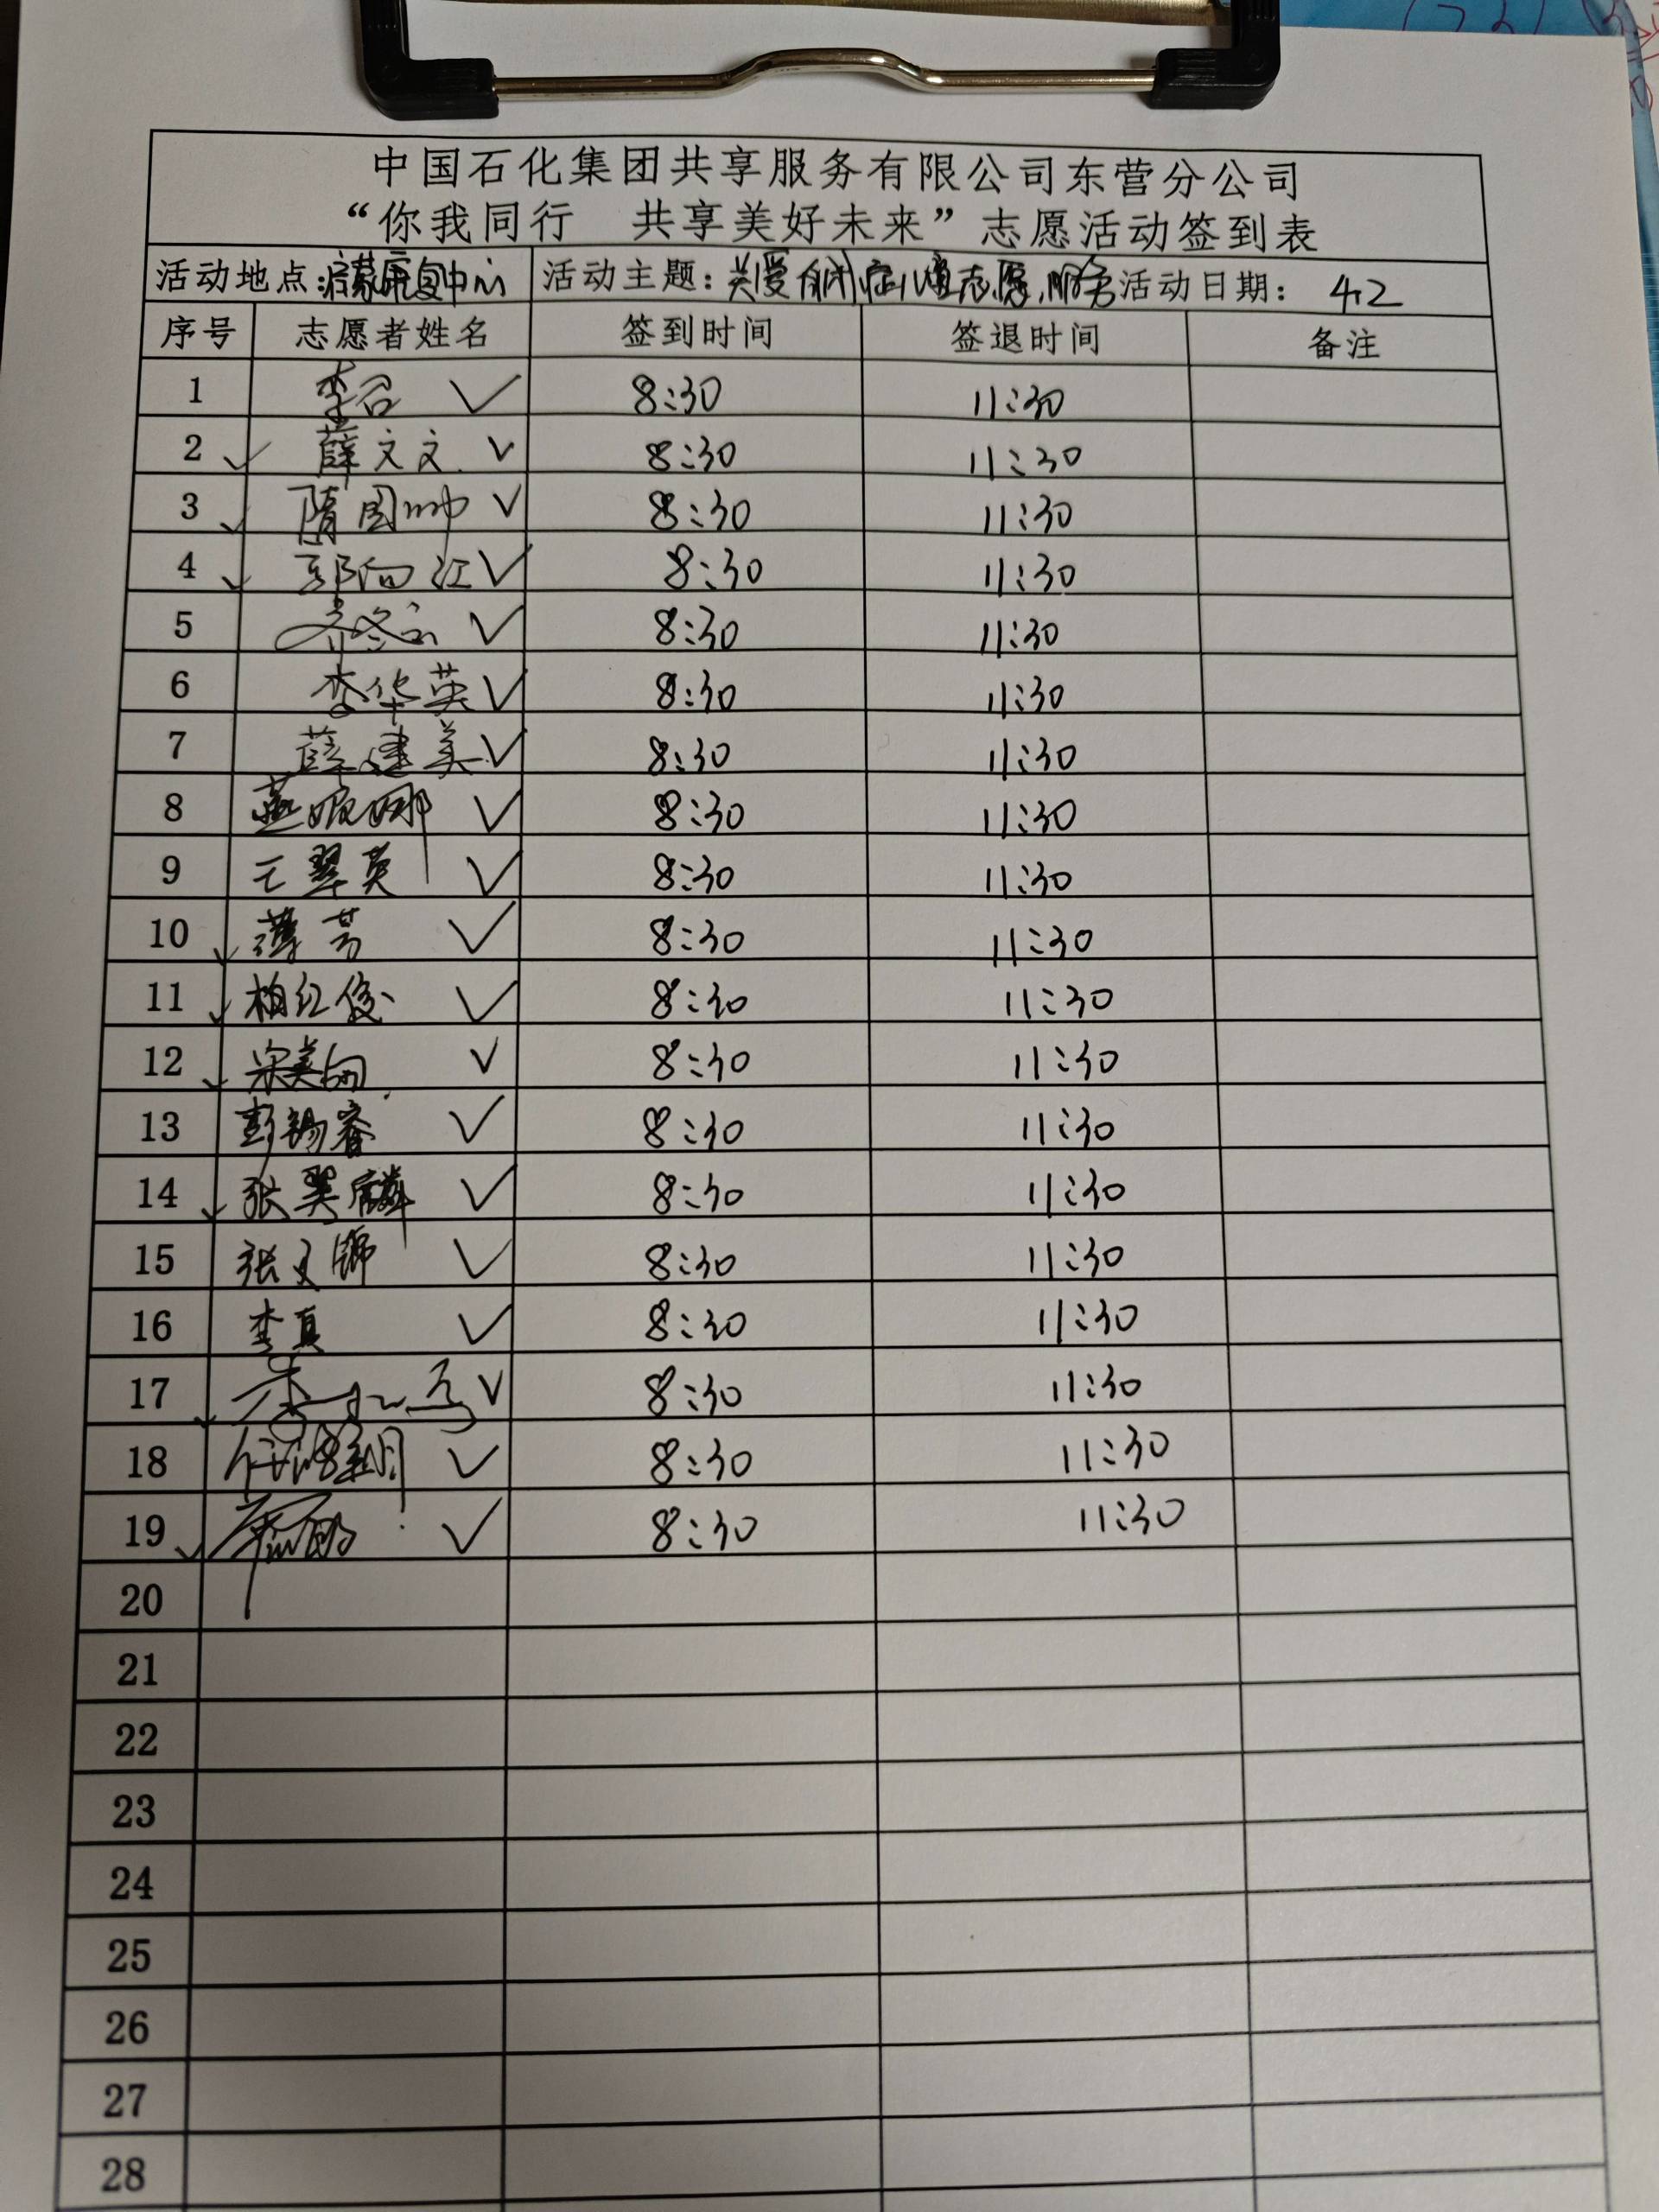 中国石化集团共享服务有限公司东营分公司
“你我同行 共享美好未来”志愿活动签到表
活动地点:康复中心 活动主题:关爱自闭症儿童志愿服务 活动日期: 4.2
序号 志愿者姓名 签到时间 签退时间 备注
1 李召 ✓ 8:30 11:30
2 ✓ 薛文文 ✓ 8:30 11:30
3 ✓ 隋国帅 ✓ 8:30 11:30
4 ✓ 郭向江 ✓ 8:30 11:30
5 ✓ 8:30 11:30
6 李华英 ✓ 8:30 11:30
7 薛建美 ✓ 8:30 11:30
8 ✓ 8:30 11:30
9 王翠英 ✓ 8:30 11:30
10 ✓ 薄芳 ✓ 8:30 11:30
11 ✓ 柏红俊 ✓ 8:30 11:30
12 ✓ 宋美 ✓ 8:30 11:30
13 彭锡 ✓ 8:30 11:30
14 ✓ 张翼麟 ✓ 8:30 11:30
15 张文 ✓ 8:30 11:30
16 李真 ✓ 8:30 11:30
17 ✓ ✓ 8:30 11:30
18 ✓ 8:30 11:30
19 ✓ ✓ 8:30 11:30
20
21
22
23
24
25
26
27
28